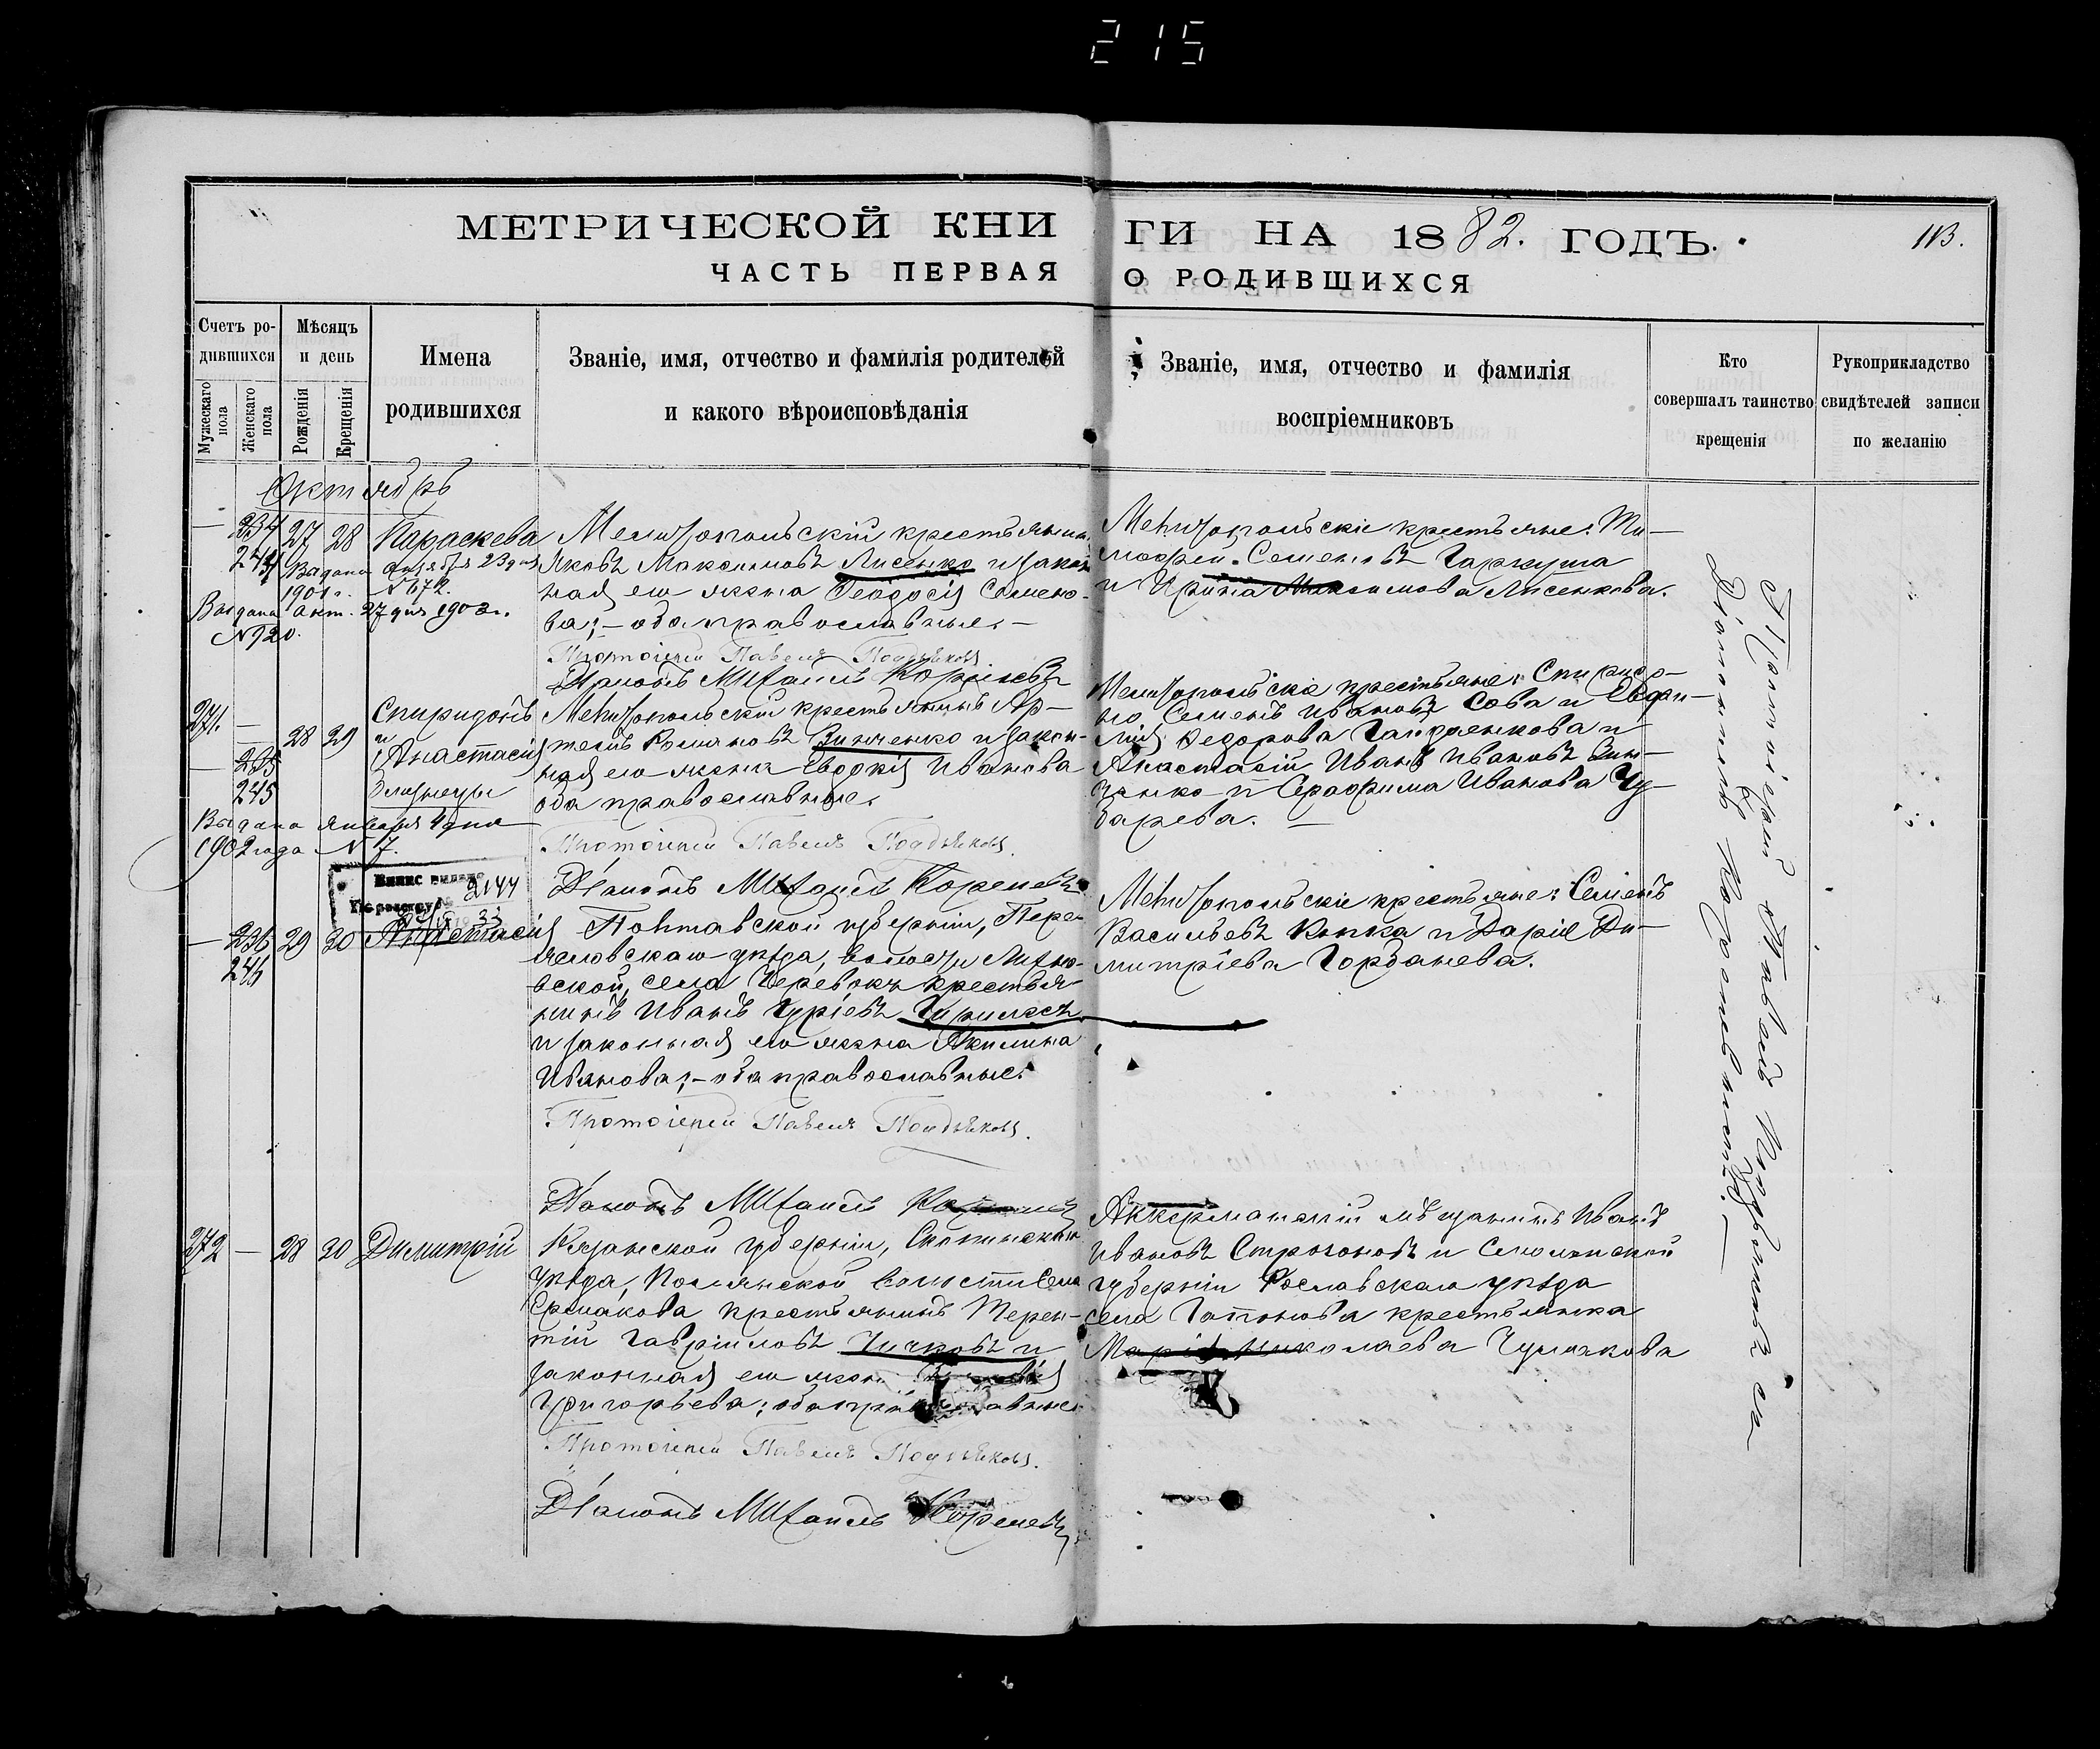 215
МЕТРИЧЕСКОЙ КНИГИ НА 1882. ГОДЪ.
113.
ЧАСТЬ ПЕРВАЯ О РОДИВШИХСЯ
Счетъ ро-
дившихся
Мужескаго пола
Женскаго пола
Мѣсяцъ
и день
Рожденія
Крещенія
Имена
родившихся
Званіе, имя, отчество и фамилія родителей
и какого вѣроисповѣданія
Званіе, имя, отчество и фамилія
воспріемниковъ
Кто
совершалъ таинство
крещенія
Рукоприкладство
свидѣтелей записи
по желанію
Октябрь
— 234 27 28 Параскева
244
Выдана 23 дня
1901 г. № 672.
Выдана окт. 27 дня 1902 г.
№ 920.
Мелитопольскій крестьянинъ
Яковъ Максимовъ Лисенко и закон
ная его жена Ѳеодосія Семено-
ва; — оба православные. —
Протоіерей Павелъ Поддьяковъ
Діаконъ Михаилъ
Мелитопольскіе крестьяне: Ти-
мофей Семеновъ Гаркуша
и Ирина Максимова Лисенкова.
271. — 28 29 Спиридонъ
и
— 235 Анастасія
245 близнецы
Выдана января 4 дня
1902 года № 7.
Мелитопольскій крестьянинъ Ар-
темъ Романовъ Зинченко и закон-
ная его жена Евдокія Иванова
оба православные.
Протоіерей Павелъ Поддьяковъ.
Діаконъ Михаилъ
Мелитопольскіе крестьяне: Спиридо-
на Семенъ Ивановъ Сова и Евфи-
мія Ѳедорова Гайдаенкова и
Анастасіи Иванъ Ивановъ Зин-
ченко и Серафима Иванова Чу-
барева. —
2144
— 236 29 30 Анастасія
246
Полтавской губерніи, Пере-
яславскаго уѣзда, волости
села крестья-
нинъ Иванъ Гуріевъ
и законная его жена Акилина
Иванова; — оба православные.
Протоіерей Павелъ Поддьяковъ.
Діаконъ Михаилъ
Мелитопольскіе крестьяне: Семенъ
Васильевъ и Дарія Ди-
митріева Горбанева.
272 — 28 30 Димитрій
Рязанской губерніи, Скопинскаго
уѣзда, волости села
Ермакова крестьянинъ Терен-
тій Гавріиловъ Чичковъ и
законная его жена
Григорьева; оба православные
Протоіерей Павелъ Поддьяковъ.
Діаконъ Михаилъ
Аккерманскій мѣщанинъ Иванъ
Ивановъ Строгоновъ и Смоленской
губерніи Рославскаго уѣзда
села крестьянка
Марія Николаева Чумакова
Протоіерей Павелъ Поддьяковъ съ
Діакономъ